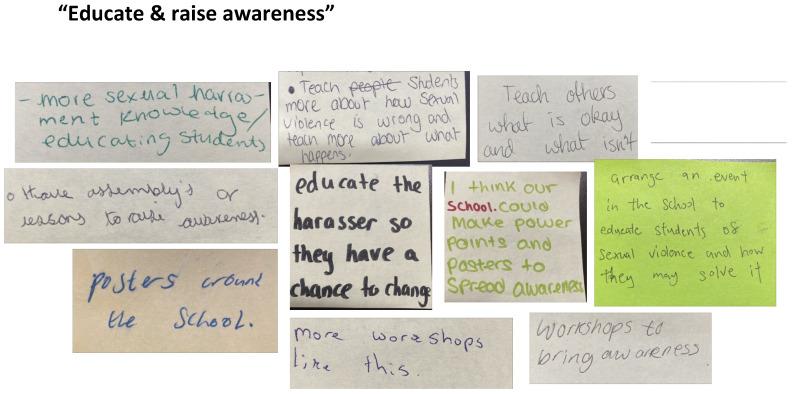 “Educate & raise awareness”
- more sexual harra-
ment knowledge/
educating students
• Teach people Students
more about how sexual
violence is wrong and
teach more about what
happens.
Teach others
what is okay
and what isn't
o Have assembly's or
lessons to raise awareness.
educate the
harasser so
they have a
chance to change
I think our
School. could
Make power
points and
Posters to
Spread awareness
arrange an event
in the school to
educate students of
sexual violence and how
they may solve it
posters around
the School.
more workshops
like this.
Workshops to
bring awareness